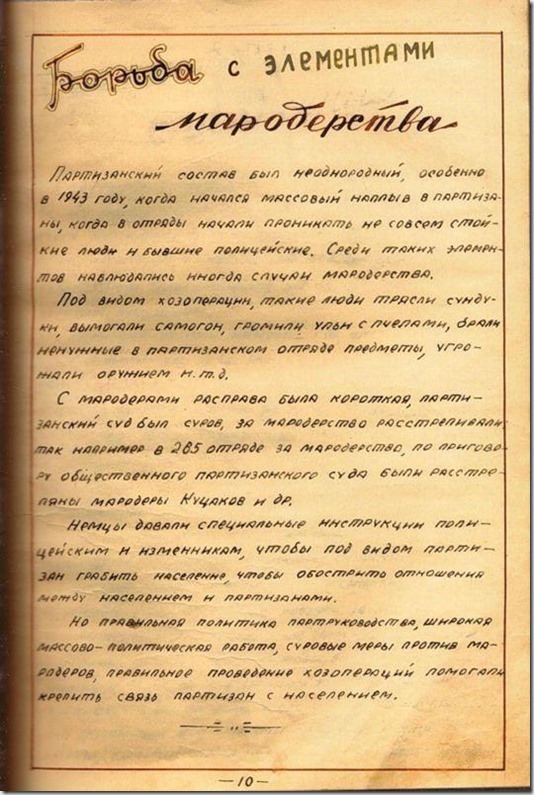 Борьба с элементами
мародерства
Партизанский состав был неоднородный, особенно
в 1943 году, когда начался массовый наплыв в партиза-
ны, когда в отряды начали проникать не совсем стой-
кие люди и бывшие полицейские. Среди таких элемен-
тов наблюдались иногда случаи мародерства.
Под видом хозоперации, такие люди трясли сунду-
ки, вымогали самогон, громили ульи с пчелами, брали
ненужные в партизанском отряде предметы, угро-
жали оружием и.т.д.
С мародерами расправа была короткая, парти-
занский суд был суров, за мародерство расстреливали
так например в 285 отряде за мародерство, по пригово-
ру общественного партизанского суда были расстре-
ляны мародеры Куцаков и др.
Немцы давали специальные инструкции поли-
цейским и изменникам, чтобы под видом парти-
зан грабить население, чтобы обострить отношения
между населением и партизанами.
Но правильная политика партруководства, широкая
массово-политическая работа, суровые меры против ма-
родеров, правильное проведение хозопераций помогали
крепить связь партизан с населением.
—10—